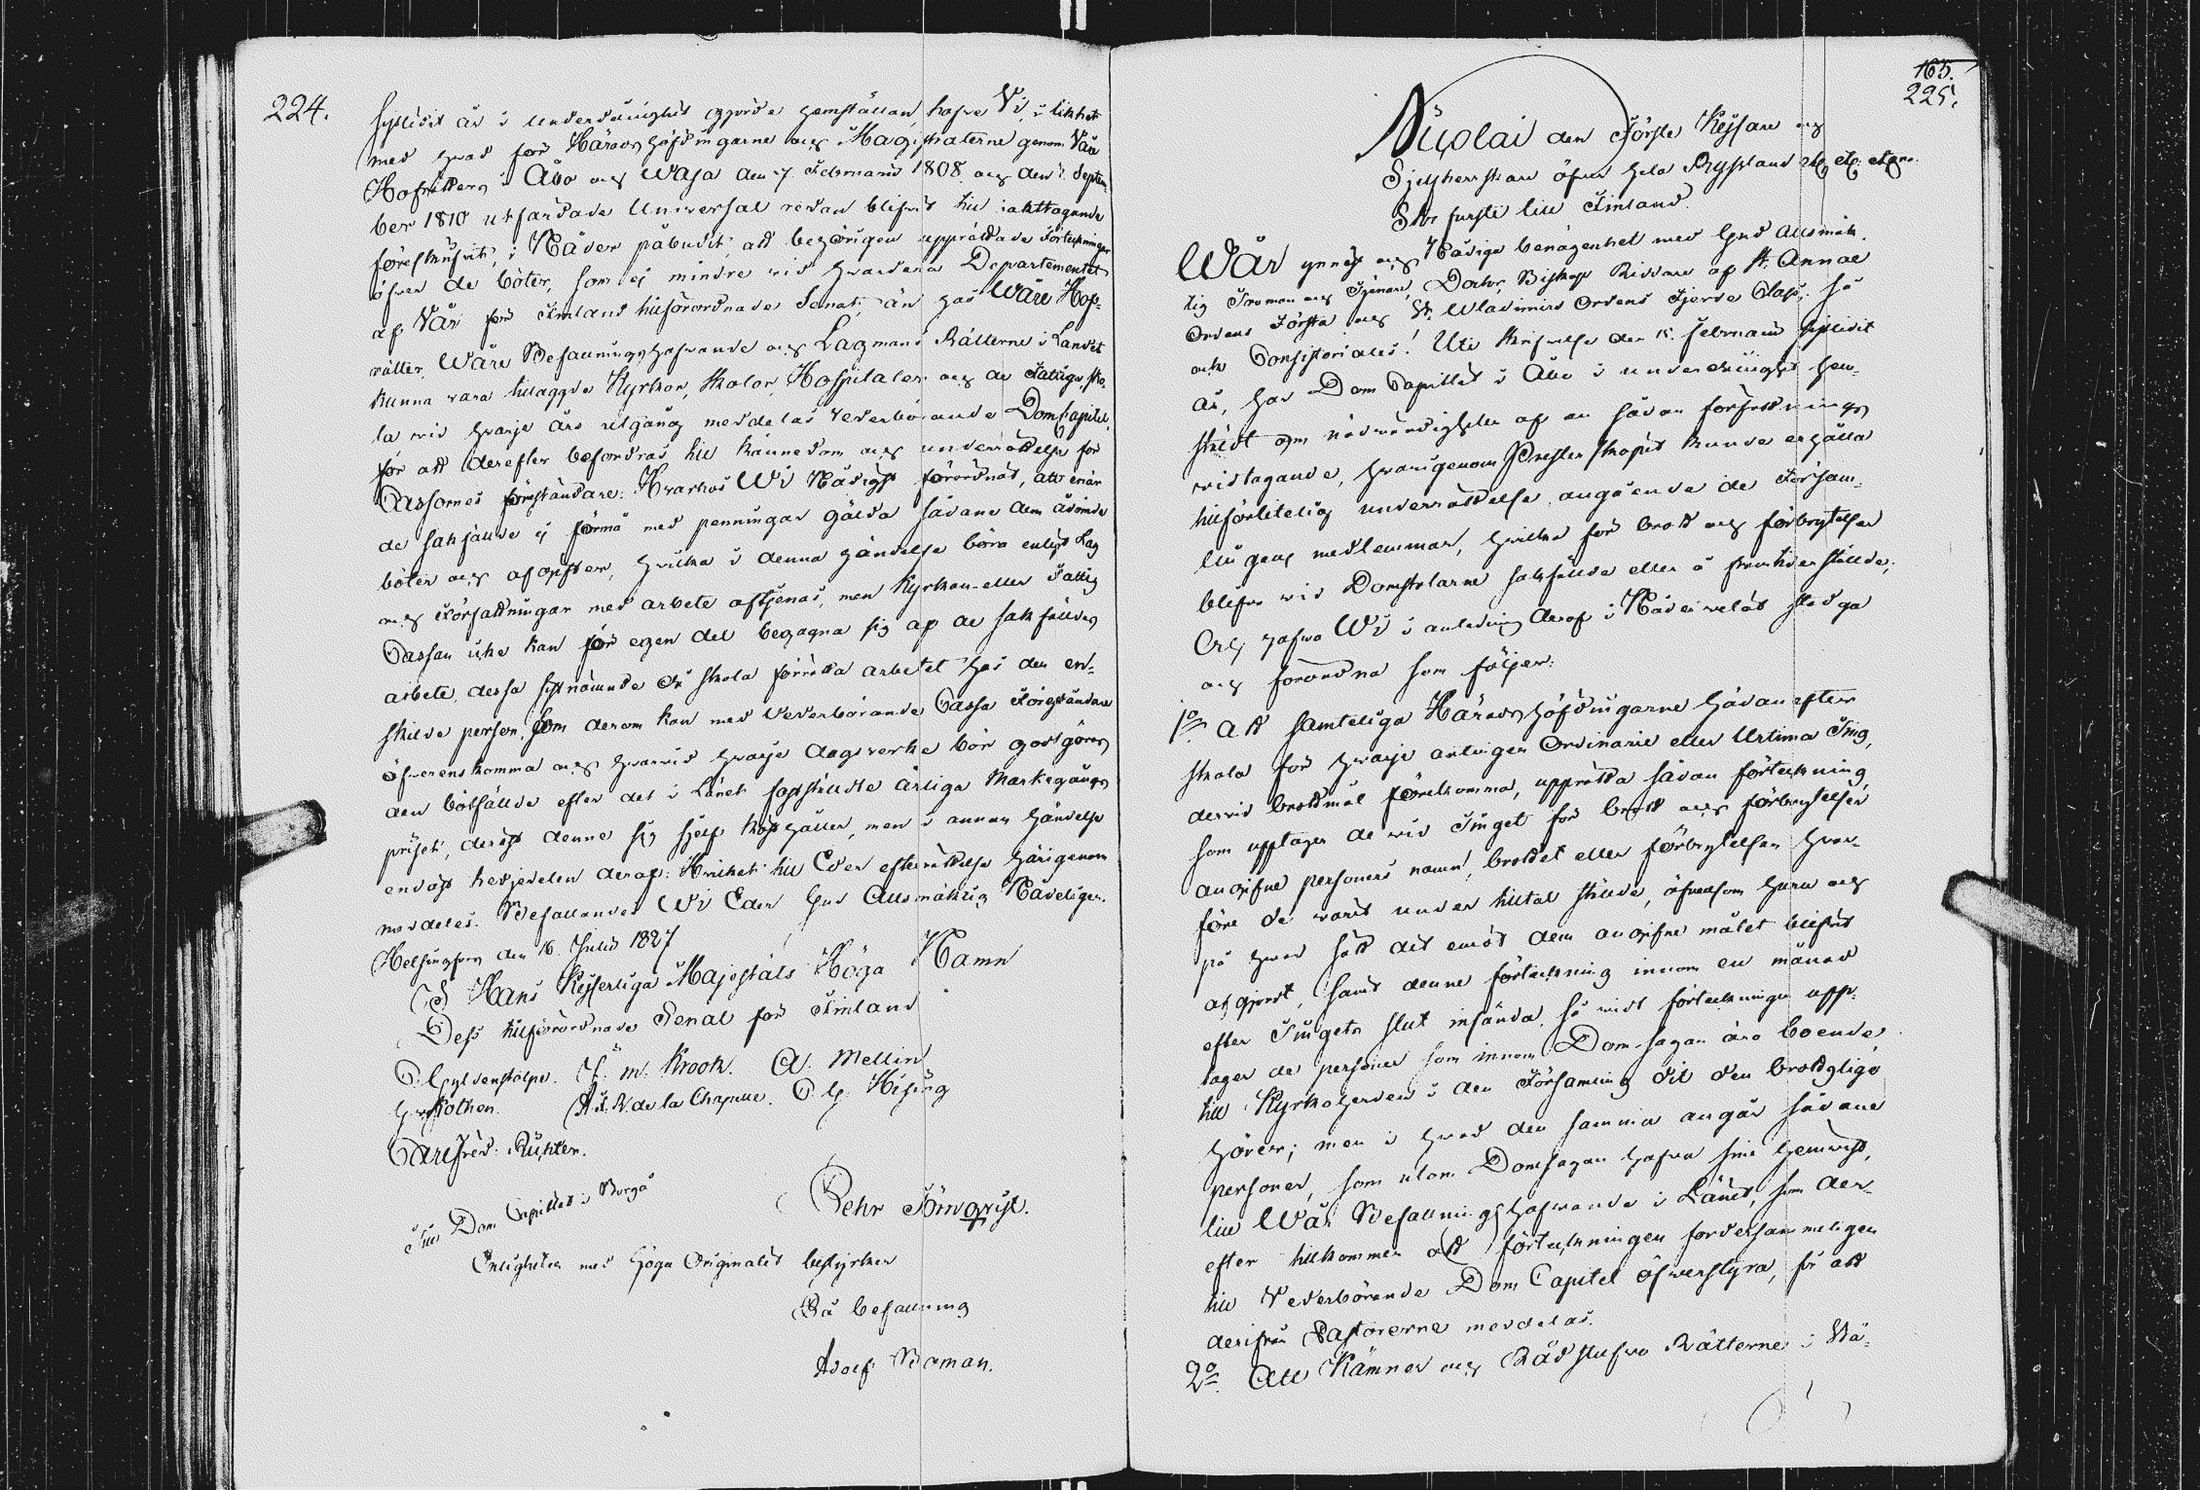 224.
sistledit år i Underdånighet gjorde hemställan hafve Vi, i likhet
med hvad för Häradshöfdingarne och Magistraterne genom Våra
Hofrätters i Åbo och Wasa den 7 Februarii 1808 och den 7. Septem
ber 1810 utfärdade Universal redan blifvit till iakttagande
föreskrifvit, i Nåder påbudit, att behörigen upprättade Förteckningar
öfver de böter, som ej mindre vid hvardera Departementet
af Vår för Finland tillförordnade Senat, än hos Wåre Hof-
rätter, Wåre Befallningshafvande och Lagmans Rätterne i Landet
kunna vara tillagde Kyrkor, Skolor, Hospitaler och de Fattige, sko-
la vid hvarje års utgång meddelas Vederbörande DomCapitel,
för att derefter befordras till kännedom och underrättelse för
Cassornes föreståndare: Hvarhos Wi Nådigst förordnat, att enär
de sakfällde ej förmå med penningar gälda sådane dem ådömde
böter och afgifter, hvilka i denna händelse böra enligt Lag
och Författningar med arbete aftjenas, men Kyrkan eller Fattig
Cassan icke kan för egen del begagna sig af de sakfälldes
arbete, dessa sistnämnde då skola förrätta arbetet hos den en-
skilde person, som derom kan med Vederbörande Cassa Föreståndare
öfverenskomma och hvarvid hvarje dagsverke bör godtgöras
den bötfällde efter det i Länet fastställdte årliga Markegångs
priset, derest denne sig sjelf kosthåller, men i annan händelse
endast tredjedelen deraf: Hvilket till Eder efterrättelse härigenom
meddeles. Befallandes Wi Eder Gud Allsmäktig Nådeligen.
Helsingfors den 16 Julii 1827
I Hans Kejserliga Majestäts Höga Namn
Dess tillförordnade Senat för Finland
C. Gyldenstolpe. J. M. Krook. A. Mellin
G. v. Kothen. A. F. R. de la Chapelle. C. G. Hising
Carl Fred: Richter.
Pehr Törnqvist.
Till Dom Capitlet i Borgå
Enligheten med höga Originalet bestyrker
På befallning
Adolf Boman.
165.
225.
Nicolai den Förste Kejsare och
Sjelfherrskare öfver hela Ryssland etc. etc. etc.
Stor furste till Finland.
Wår ynnest och Nådiga benägenhet med Gud Allsmäk-
tig Troman och Tjenare, Doctor, Biskop Riddare af St. Annae
Ordens Första och St. Wladimirs Ordens Fjerde Class, så
ock Consistoriales! Uti skrifvelse den 15. Februarii sistledit
år, har Dom Capitlet i Åbo i underdånighet hem-
stält om nödvändigheten af en sådan författnings
vidtagande, hvarigenom Presterskapet kunde erhålla
tillförlitelig underrättelse angående de Försam-
lingens medlemmar, hvilka för brott och förbrytelser
blifva vid Domstolarne sakfällde eller å framtiden ställde;
Och hafva Wi i anledning deraf i Nåder velat stadga
och förordna som följer:
1o att samteliga Häradshöfdingarne hädanefter
skola för hvarje antingen Ordinarie eller Urtima Ting,
dervid brottmål förekomma, upprätta sådan förteckning,
som upptager de vid Tinget för brott och förbrytelser
angifne personers namn, brottet eller förbrytelsen hvar-
före de varit under tilltal ställde, äfvensom huru och
på hvad sätt det emot dem angifne målet blifvit
afgjordt, samt denne förteckning innom en månad
efter Tingets slut insända, så vidt förteckningen upp-
tager de personer som innom Domsagan äro boende,
till Kyrkoherden i den Församling dit den brottslige
hörer; men i hvad den samma angår sådane
personer, som utom Domsagan hafva sine hemvist,
till Wår Befallningshafvande i Länet, som der-
efter tillkommer att förteckningen fordersammeligen
till Vederbörande Dom Capitel öfverstyra, för att
derifrån Pastorerne meddelas.
2o Att Kämners och Rådstufvu Rätterne i Stä-